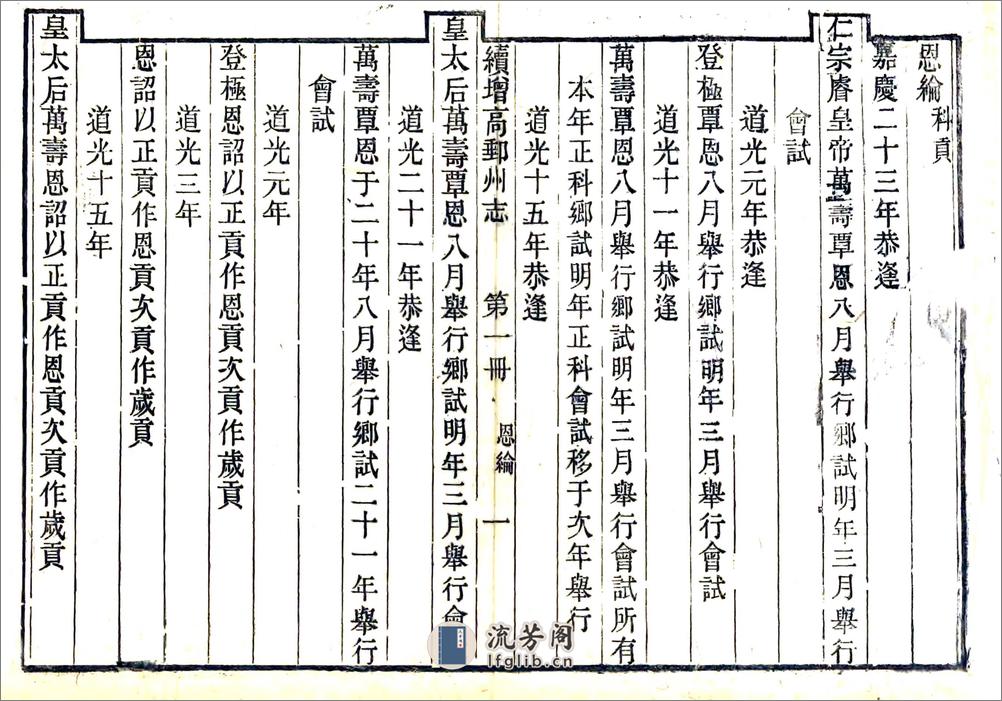 恩綸科貢
嘉慶二十三年恭逢
仁宗睿皇帝萬壽覃恩八月舉行鄉試明年三月舉行
會試
道光元年恭逢
登極覃恩八月舉行鄉試明年三月舉行會試
道光十一年恭逢
萬壽覃恩八月舉行鄉試明年三月舉行會試所有
本年正科鄉試明年正科會試移于次年舉行
道光十五年恭逢
續增高郵州志 第一冊 恩綸 一
皇太后萬壽覃恩八月舉行鄉試明年三月舉行會
道光二十一年恭逢
萬壽覃恩于二十年八月舉行鄉試二十一年舉行
會試
道光元年
登極恩詔以正貢作恩貢次貢作歲貢
道光三年
恩詔以正貢作恩貢次貢作歲貢
道光十五年
皇太后萬壽恩詔以正貢作恩貢次貢作歲貢
流芳阁
lfglib.cn